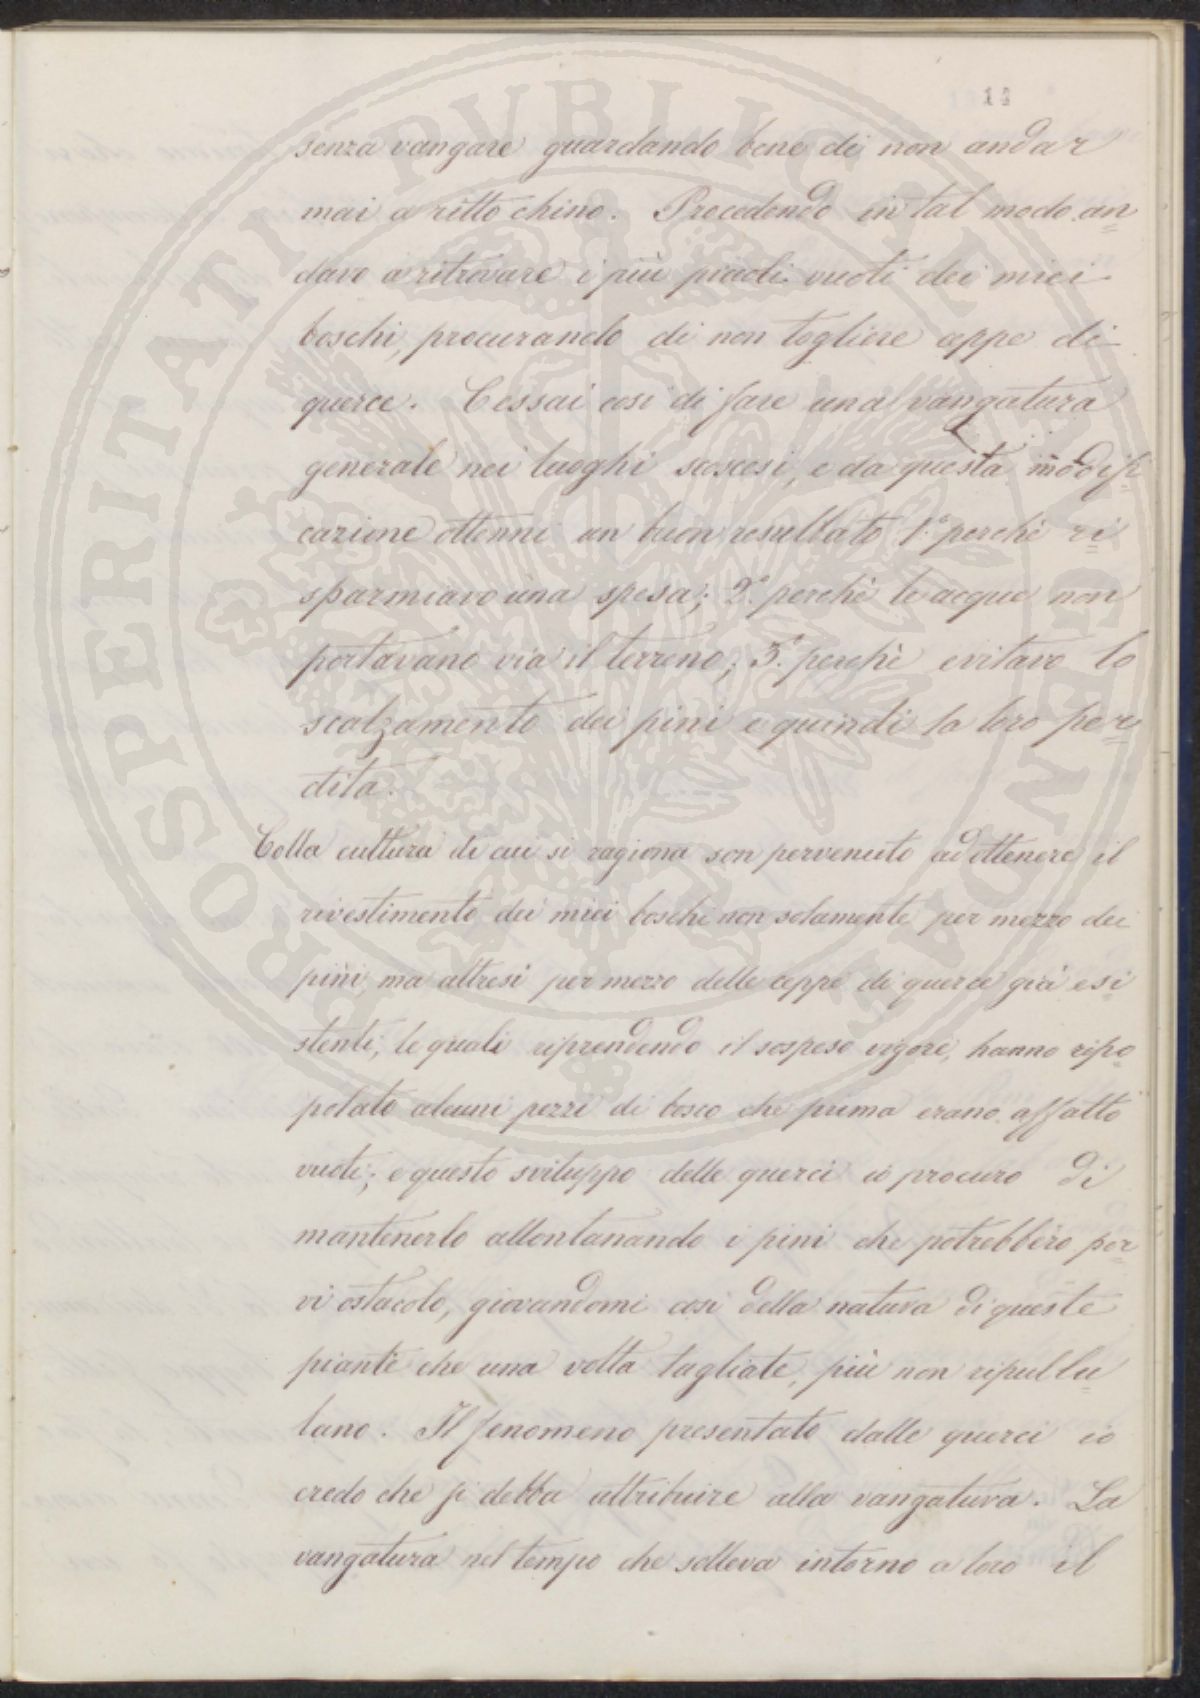 14
senza vangare guardando bene di non andar
mai a ritto chino. Procedendo in tal modo an=
davo a ritrovare i più piccoli vuoti dei miei
boschi, procurando di non togliere ceppe di
querce. Cessai così di fare una vangatura
generale nei luoghi scoscesi, e da questa modifi=
cazione ottenni un buon resultato 1.° perchè ri=
sparmiavo una spesa; 2.° perchè le acque non
portavano via il terreno; 3.° perchè evitavo lo
scalzamento dei pini e quindi la loro per=
dita.
Colla cultura di cui si ragiona son pervenuto ad ottenere il
rivestimento dei miei boschi non solamente per mezzo dei
pini, ma altresì per mezzo delle ceppe di querce già esi=
stenti, le quali riprendendo il sospeso vigore, hanno ripo=
polato alcuni pezzi di bosco che prima erano affatto
vuoti; e questo sviluppo delle querci io procuro di
mantenerlo allontanando i pini che potrebbero por=
vi ostacolo, giovandomi così della natura di queste
piante che una volta tagliate, più non ripullu=
lano. Il fenomeno presentato dalle querci io
credo che si debba attribuire alla vangatura. La
vangatura nel tempo che solleva intorno a loro il
PROSPERITATI PVBLICAE AVGENDAE